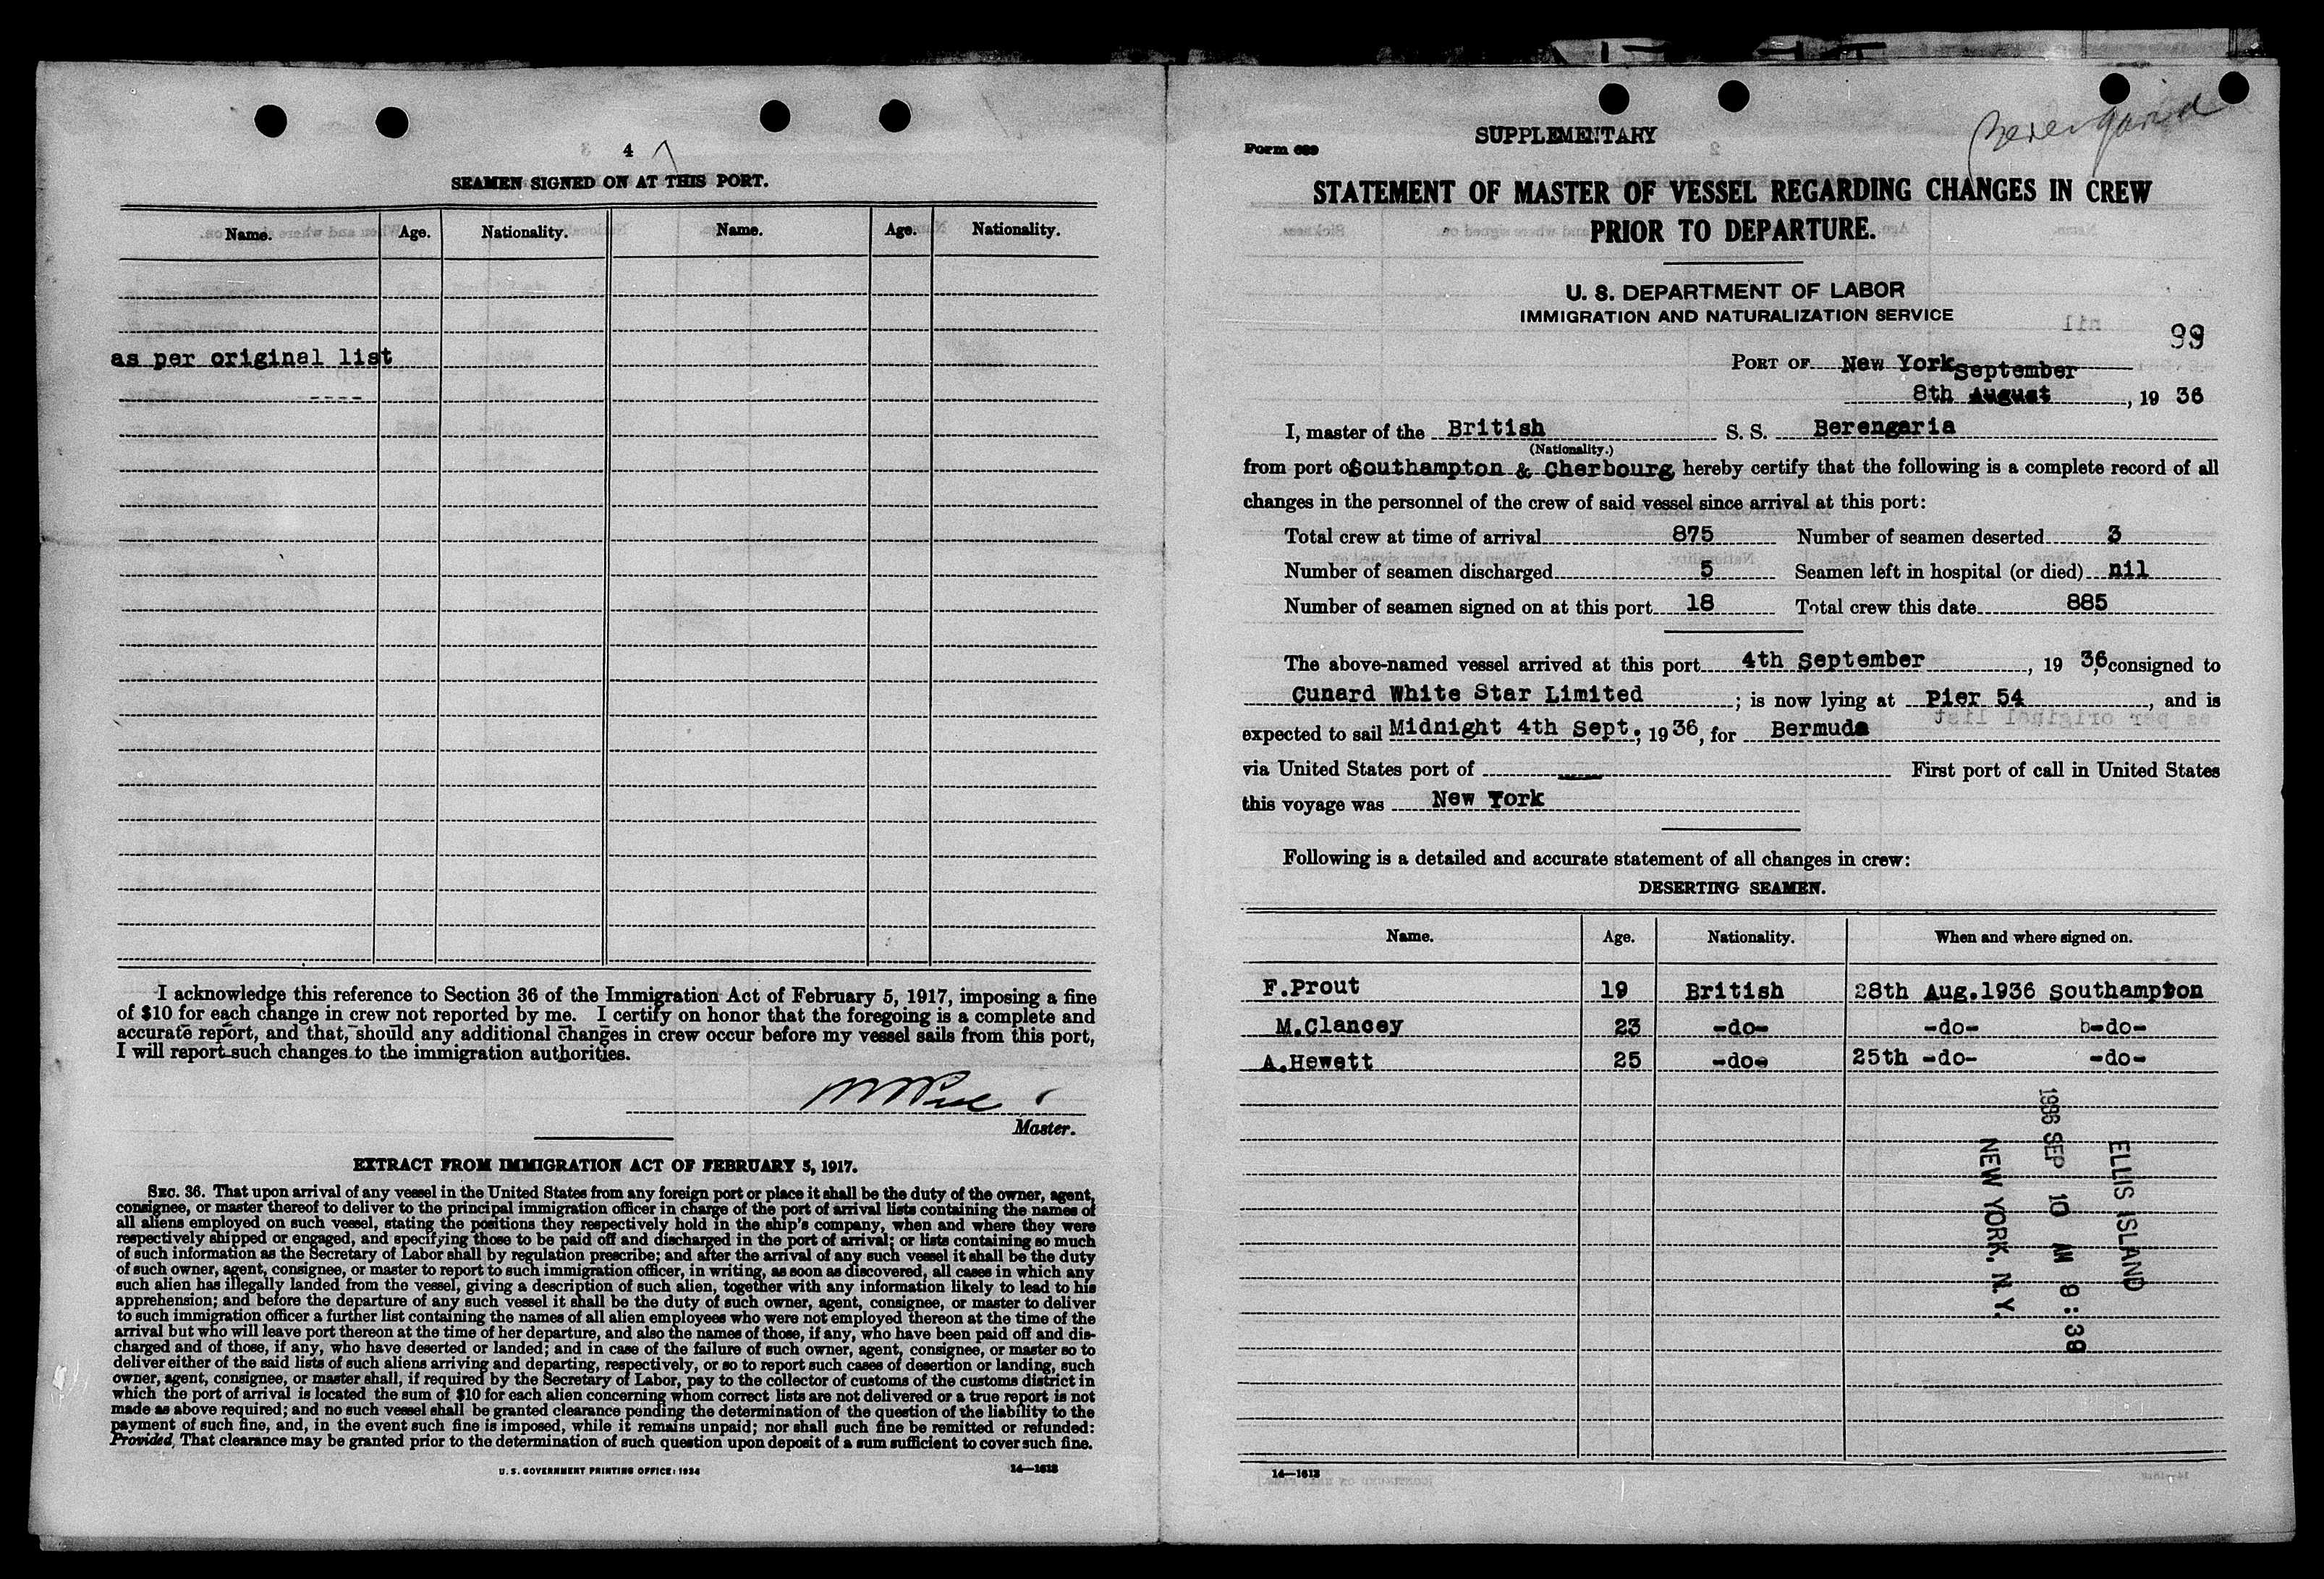 4
SEAMEN SIGNED ON AT THIS PORT.
Name. Age. Nationality. Name. Age. Nationality.
as per original list
----
I acknowledge this reference to Section 36 of the Immigration Act of February 5, 1917, imposing a fine
of $10 for each change in crew not reported by me. I certify on honor that the foregoing is a complete and
accurate report, and that, should any additional changes in crew occur before my vessel sails from this port,
I will report such changes to the immigration authorities.
Master.
EXTRACT FROM IMMIGRATION ACT OF FEBRUARY 5, 1917.
SEC. 36. That upon arrival of any vessel in the United States from any foreign port or place it shall be the duty of the owner, agent,
consignee, or master thereof to deliver to the principal immigration officer in charge of the port of arrival lists containing the names of
all aliens employed on such vessel, stating the positions they respectively hold in the ship's company, when and where they were
respectively shipped or engaged, and specifying those to be paid off and discharged in the port of arrival; or lists containing so much
of such information as the Secretary of Labor shall by regulation prescribe; and after the arrival of any such vessel it shall be the duty
of such owner, agent, consignee, or master to report to such immigration officer, in writing, as soon as discovered, all cases in which any
such alien has illegally landed from the vessel, giving a description of such alien, together with any information likely to lead to his
apprehension; and before the departure of any such vessel it shall be the duty of such owner, agent, consignee, or master to deliver
to such immigration officer a further list containing the names of all alien employees who were not employed thereon at the time of the
arrival but who will leave port thereon at the time of her departure, and also the names of those, if any, who have been paid off and dis-
charged and of those, if any, who have deserted or landed; and in case of the failure of such owner, agent, consignee, or master so to
deliver either of the said lists of such aliens arriving and departing, respectively, or so to report such cases of desertion or landing, such
owner, agent, consignee, or master shall, if required by the Secretary of Labor, pay to the collector of customs of the customs district in
which the port of arrival is located the sum of $10 for each alien concerning whom correct lists are not delivered or a true report is not
made as above required; and no such vessel shall be granted clearance pending the determination of the question of the liability to the
payment of such fine, and, in the event such fine is imposed, while it remains unpaid; nor shall such fine be remitted or refunded:
Provided, That clearance may be granted prior to the determination of such question upon deposit of a sum sufficient to cover such fine.
U. S. GOVERNMENT PRINTING OFFICE: 1934 14—1613
Berengaria
SUPPLEMENTARY
Form 689
STATEMENT OF MASTER OF VESSEL REGARDING CHANGES IN CREW
PRIOR TO DEPARTURE.
U. S. DEPARTMENT OF LABOR
IMMIGRATION AND NATURALIZATION SERVICE
99
PORT OF New York
September
8th August, 19 36
I, master of the British S. S. Berengaria
(Nationality.)
from port of Southampton & Cherbourg hereby certify that the following is a complete record of all
changes in the personnel of the crew of said vessel since arrival at this port:
Total crew at time of arrival 875 Number of seamen deserted 3
Number of seamen discharged 5 Seamen left in hospital (or died) nil
Number of seamen signed on at this port 18 Total crew this date 885
The above-named vessel arrived at this port 4th September, 19 36, consigned to
Cunard White Star Limited ; is now lying at Pier 54, and is
expected to sail Midnight 4th Sept., 1936, for Bermuda
via United States port of ---- First port of call in United States
this voyage was New York
Following is a detailed and accurate statement of all changes in crew:
DESERTING SEAMEN.
Name. Age. Nationality. When and where signed on.
F.Prout 19 British 28th Aug.1936 Southampton
M.Clancey 23 -do- -do- b-do-
A.Hewett 25 -do- 25th -do- -do-
ELLIS ISLAND
1936 SEP 10 AM 9:38
NEW YORK, N.Y.
14—1613